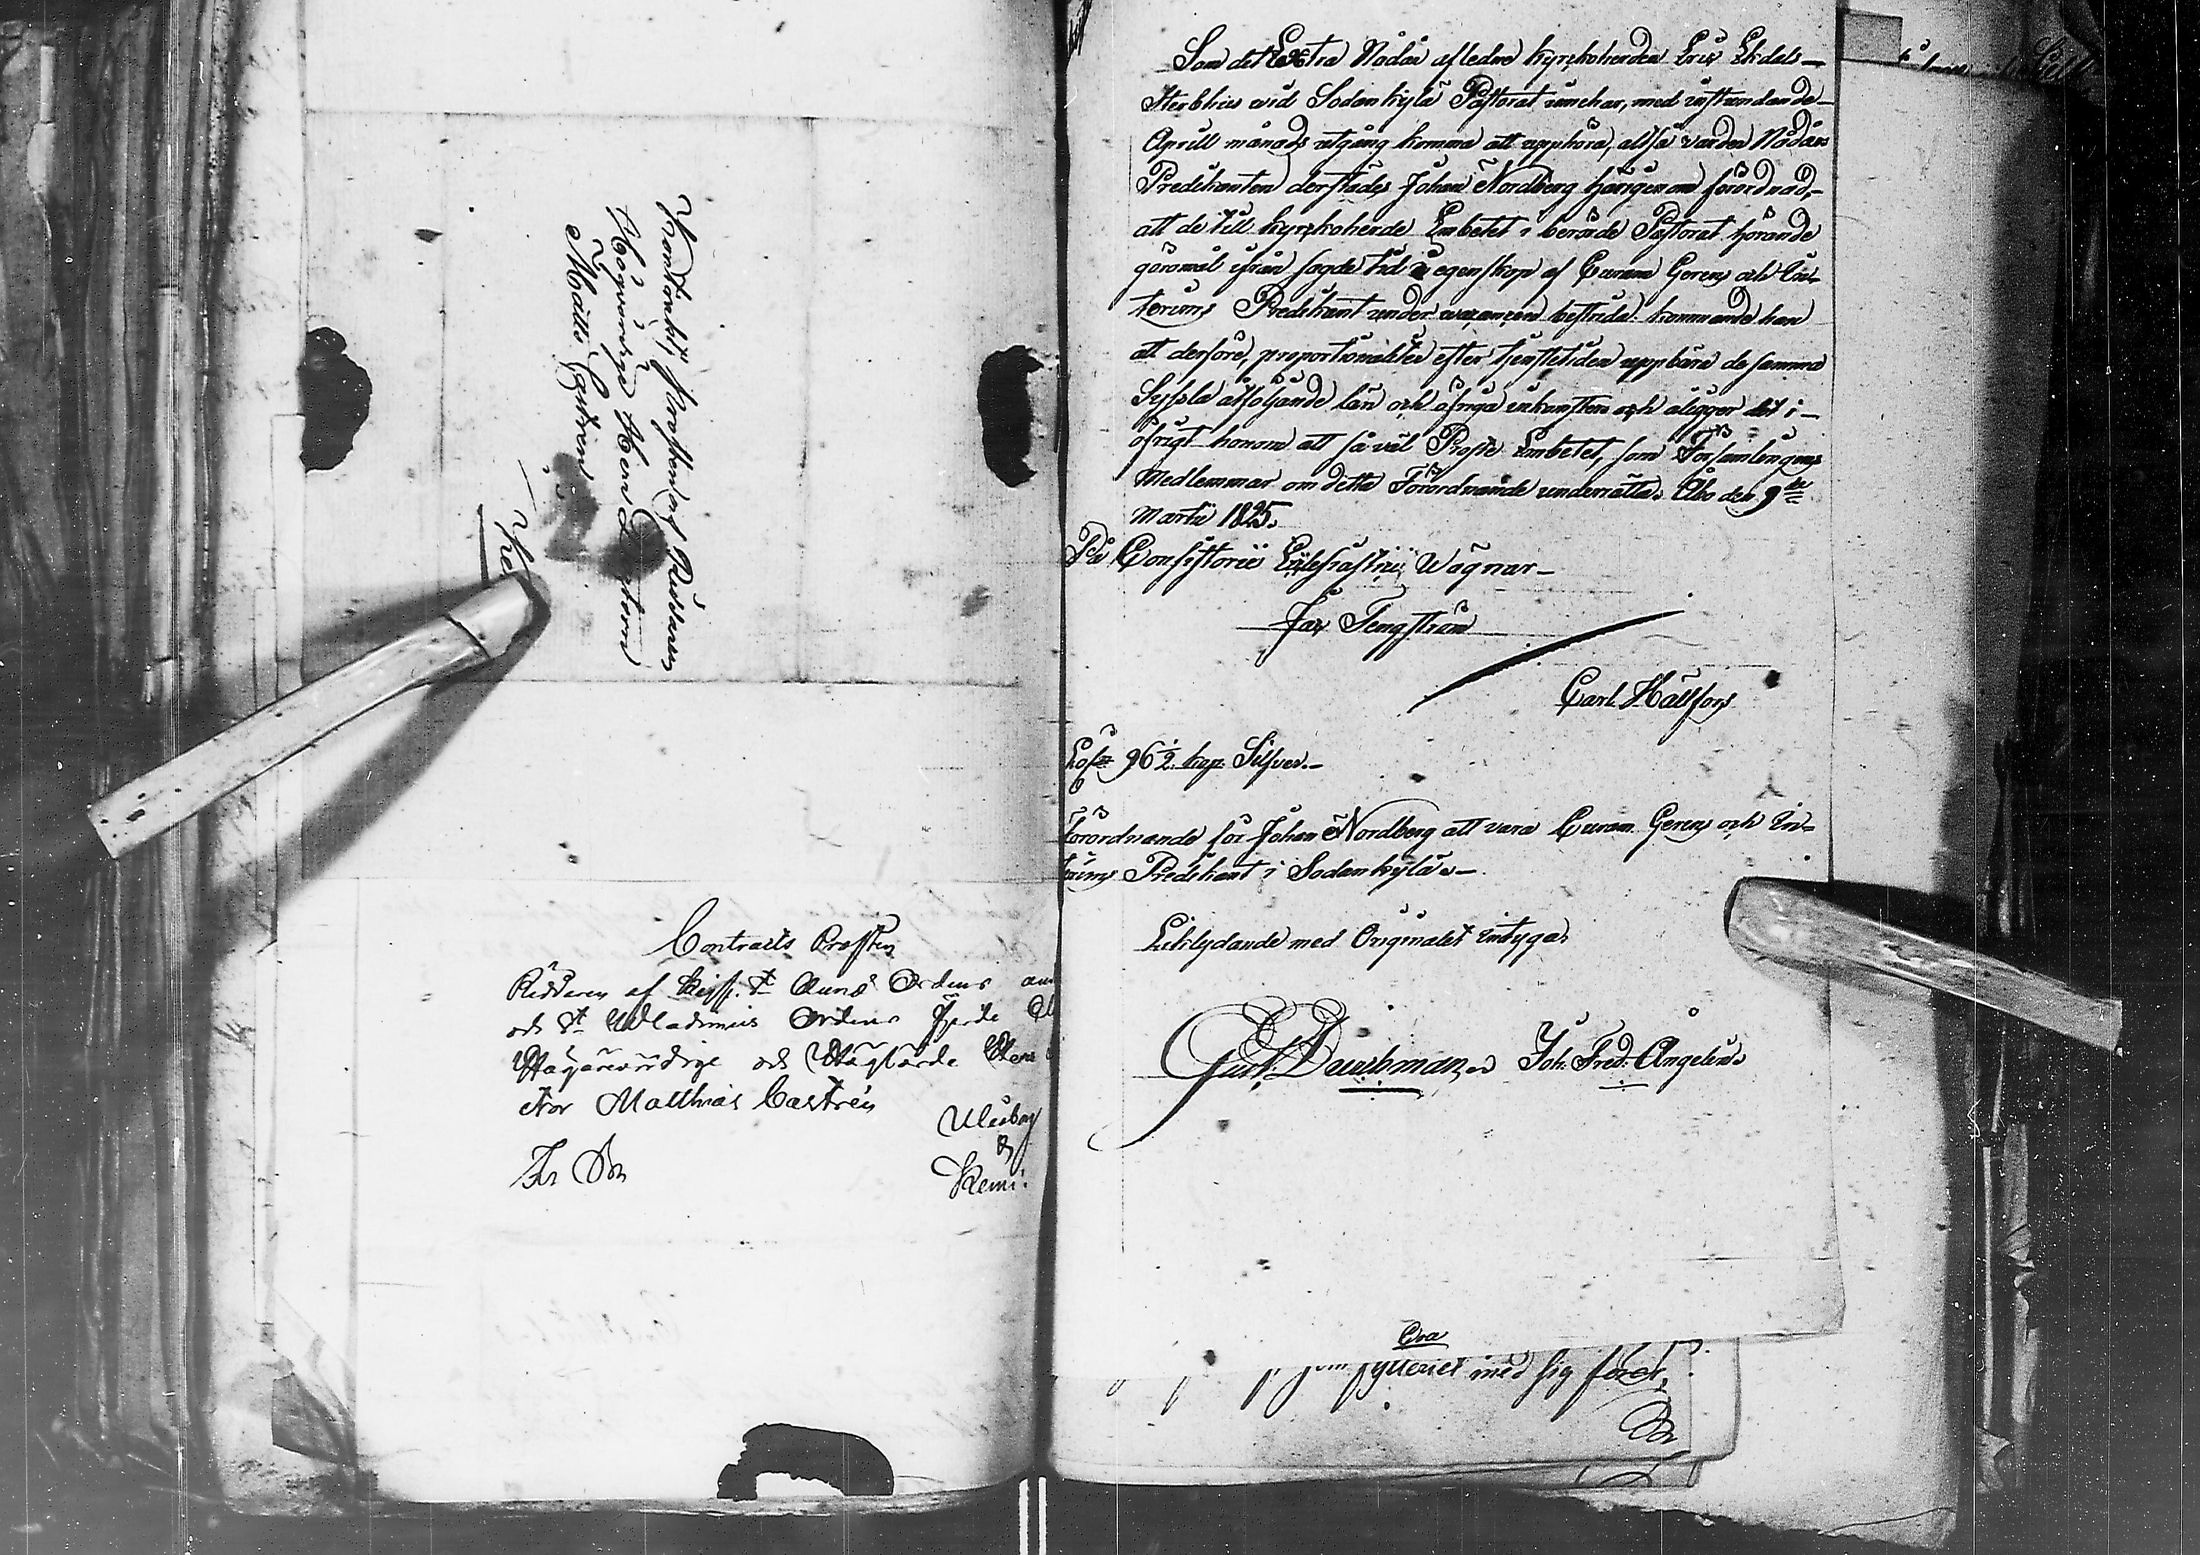 Kontrakts Prosten och Riddaren
Högvördige Herr Doctorn
Matts Castrén
Contracts Prosten
Riddaren af Kejs. St Annæ Ordens an
och St Wladimirs Ordens fjerde Cl
Högärevördige och Höglärde Herr
ctor Matthias Castrén
Uleåborg
Fr Sbr
&
Kemi.
Som det Extra Nådår afledne Kyrkoherden Eric Ekdals
Sterbhus wid Sodankylä Pastorat innehar, med instundande
Aprill månads utgång komma att upphöra, altså warder Nådårs
Predikanten derstädes Johan Nordberg härigenom förordnad,
att de till Kyrkoherde Embetet i berörde Pastorat hörande
göromål ifrån sagde tid i egenskap af Curam Gerens och In-
terims Predikant under vacancen bestrida: kommande han
att derföre, proportionaliter efter tjenstetiden uppbära de samma
Syssla åtföljande lön och öfriga inkomsten och åligger det i
öfrigt honom att så väl Proste Embetet, som Församlingens
Medlemmar om detta Förordnande underrätta. Åbo den 9de
Martii 1825.
På Consistorii Ecclesiastici Wägnar
Jac Tengström
Carl Hällfors
Lösn 96 1/2 kop. Silfver.
Förordnande för Johan Nordberg att vara Curam Gerens och In-
terims Predikant i Sodankylä.
Liklydande med Originalet intyga:
Gust. Deuchman. Joh. Fred. Ångelin.
Cra
med sig förer,